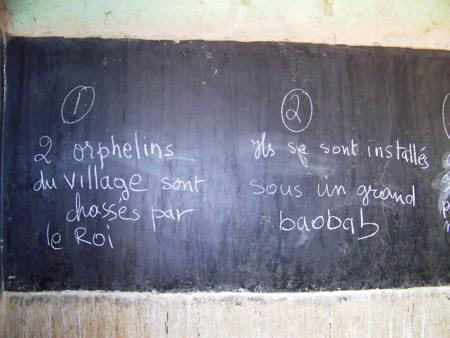 1
2 orphelins
du village sont
chassés par
le Roi
2
Ils se sont installés
sous un grand
baobab